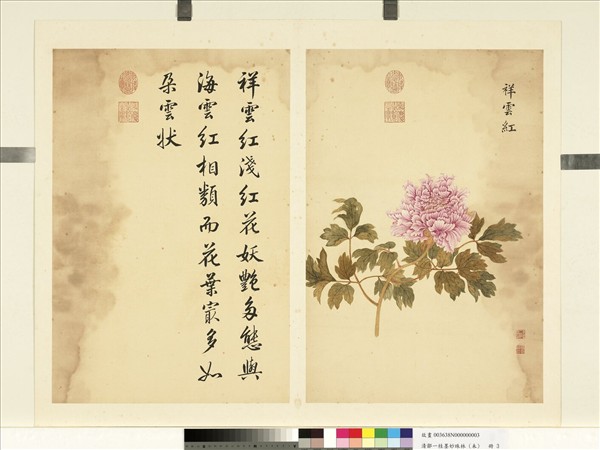 祥雲紅
祥雲紅淺紅花妖艷多態與
海雲紅相類而花葉最多如
朶雲狀
故畫 003638N000000003
清鄒一桂墨妙珠林（未） 冊 3